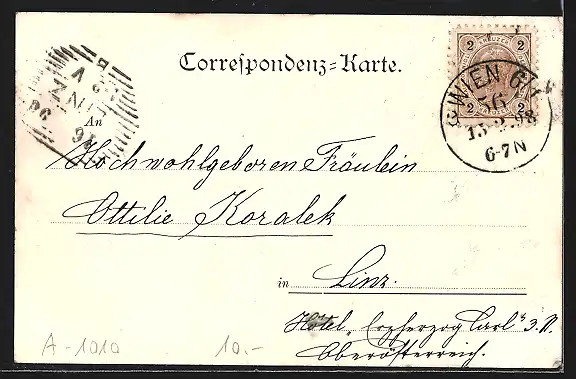 Correspondenz=Karte.
2 KREUZER 2
2 2
WIEN
56
15.2.98
6-7N
LINZ
16
98
An
Hochwohlgeboren Fräulein
Ottilie Koralek
in Linz.
Hôtel „Erzherzog Carl" 3. N.
Oberösterreich.
A-1010 10.-